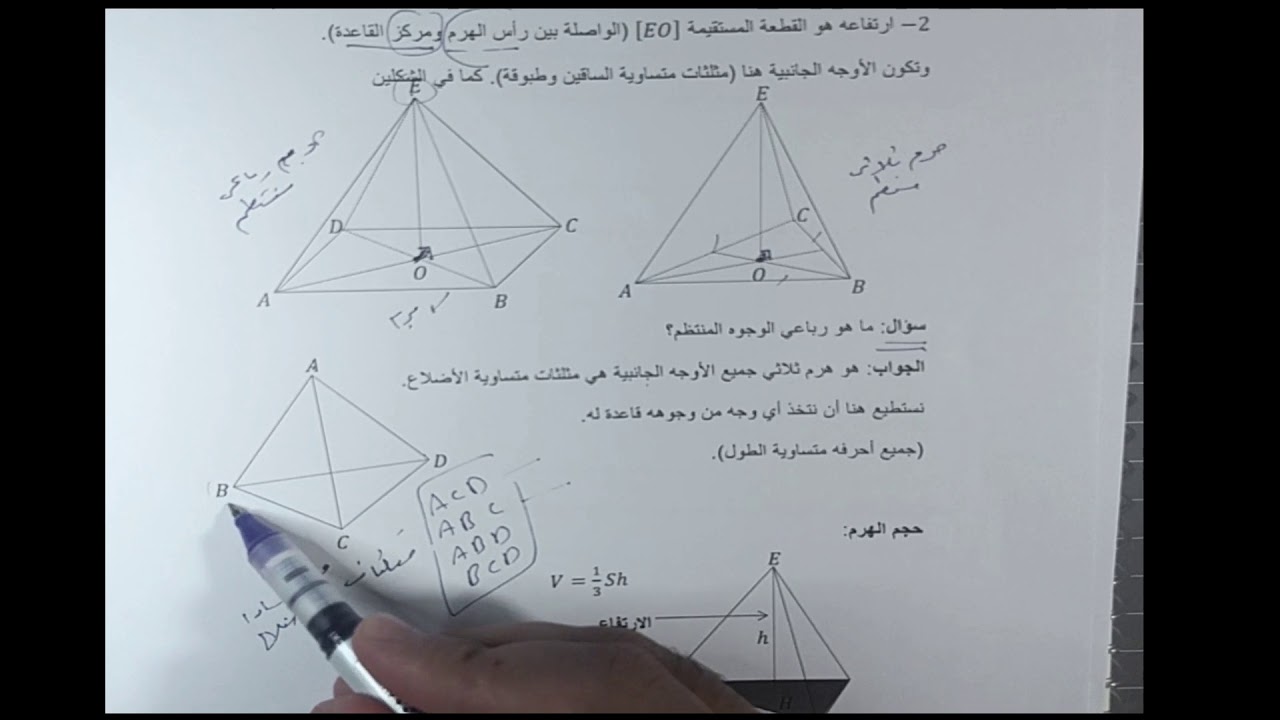 2– ارتفاعه هو القطعة المستقيمة [EO] (الواصلة بين رأس الهرم ومركز القاعدة).
وتكون الأوجه الجانبية هنا (مثلثات متساوية الساقين وطبوقة). كما في الشكلين
E
D
C
O
A
B
هرم رباعي
منتظم
E
C
O
A
B
هرم ثلاثي
منتظم
سؤال: ما هو رباعي الوجوه المنتظم؟
الجواب: هو هرم ثلاثي جميع الأوجه الجانبية هي مثلثات متساوية الأضلاع.
نستطيع هنا أن نتخذ أي وجه من وجوهه قاعدة له.
(جميع أحرفه متساوية الطول).
A
B
D
C
ACD
ABC
ABD
BCD
مثلثات
حجم الهرم:
V = 1/3 Sh
الارتفاع
E
h
H